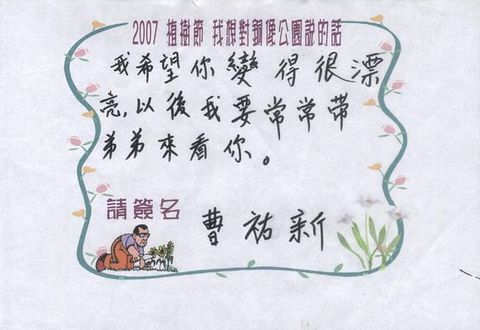 2007 植樹節 我想對銅像公園說的話
我希望你變得很漂
亮,以後我要常常帶
弟弟來看你。
請簽名 曹祐新